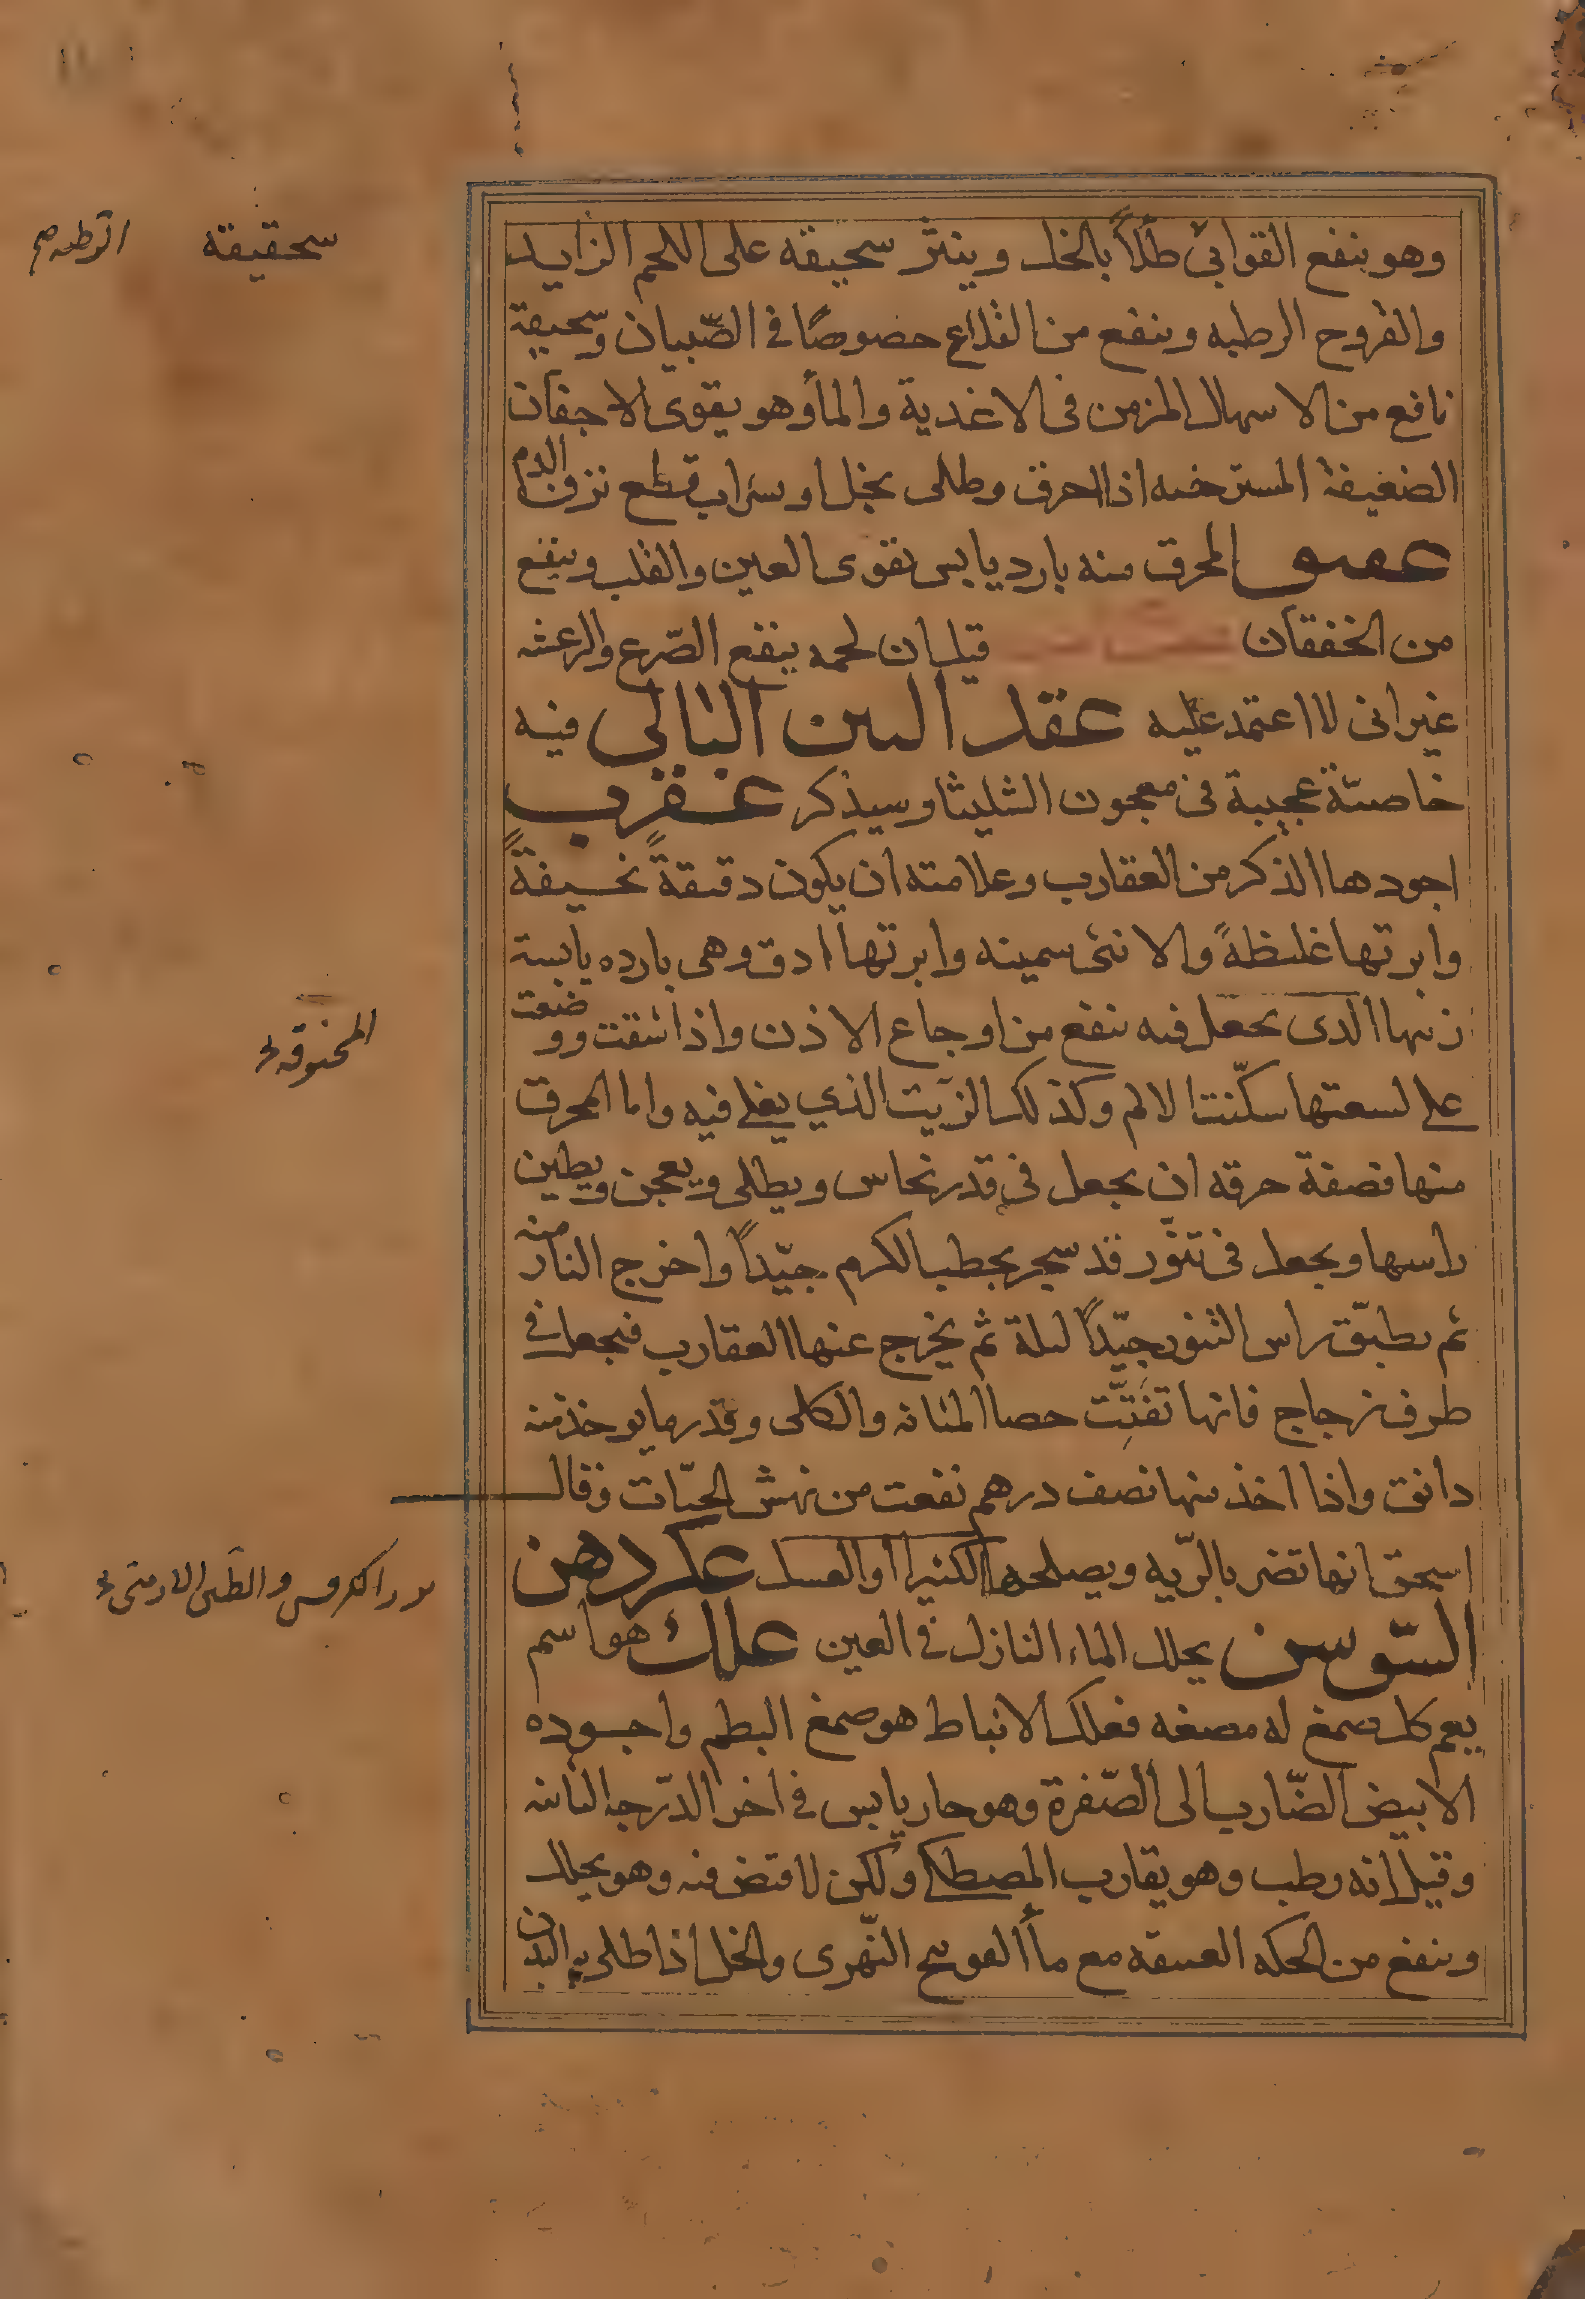 وهو ينفع القوابئ طلاً بالخل وينثر سحيقه على اللحم الزايد
والقروح الرطبه وينفع من القلاع خصوصًا في الصّبيان وسحيقة
نافع من الاسهال المزمن في الاغدية والمأ وهو يقوى الاجفان
الضعيفة المسترخيه اذا احرق وطلى بخل او سراب قطع نزف الدم
المحرق منه بارد يابس يقوى العين والقلب وينفع
من الخفقان قيل ان لحمه ينفع الصّرع والرعشه
غير انى لا اعتمد عليه عقد التين البالى فيه
خاصّة عجيبة فى معجون الشليثا وسيذكر عقرب
اجودها الذكر من العقارب وعلامته ان يكون دقيقةً نحيفةً
وابرتها غليظةً والانثى سمينه وابرتها ادق وهى بارده يابسة
زيتها الدى يجعل فيه ينفع من اوجاع الاذن واذا شقت ووضعت
على لسعتها سكّنت الالم وكذلك الزيت الذي يغلى فيه واما المحرق
منها فصفة حرقه ان يجعل في قدر نحاس ويطلى ويعجن ويطين
راسها ويجعل فى تنّور قد سجر بحطب الكرم جيّداً واخرج النار منه
ثم يطبّق راس التنور جيّداً ليلة ثم يخرج عنها العقارب فيجعل في
طرف زجاج فانها تفتّت حصا المثانه والكلى وقدر ما يوخذ منه
دانق واذا اخذ منها نصف درهم نفعت من نهش الحيّات وقال
اسحق انها تضر بالرّيه ويصلحها الكثيرا او العسل عكر دهن
السّوسن يحلل الماء النازل في العين علك هو اسم
يعم كل صمغ له مصغه فعلك الانباط هو صمغ البطم واجوده
الابيض الضّارب الى الصّفرة وهو حار يابس في اخر الدّرجه الثانيه
وقيل انه رطب وهو يقارب المصطكى ولكن لا قبض فيه وهو يحلل
وينفع من الحكه العتيقه مع مأ العوسج النّهرى والخل اذا طلى به البدن
سحقيقة
المحنوقه